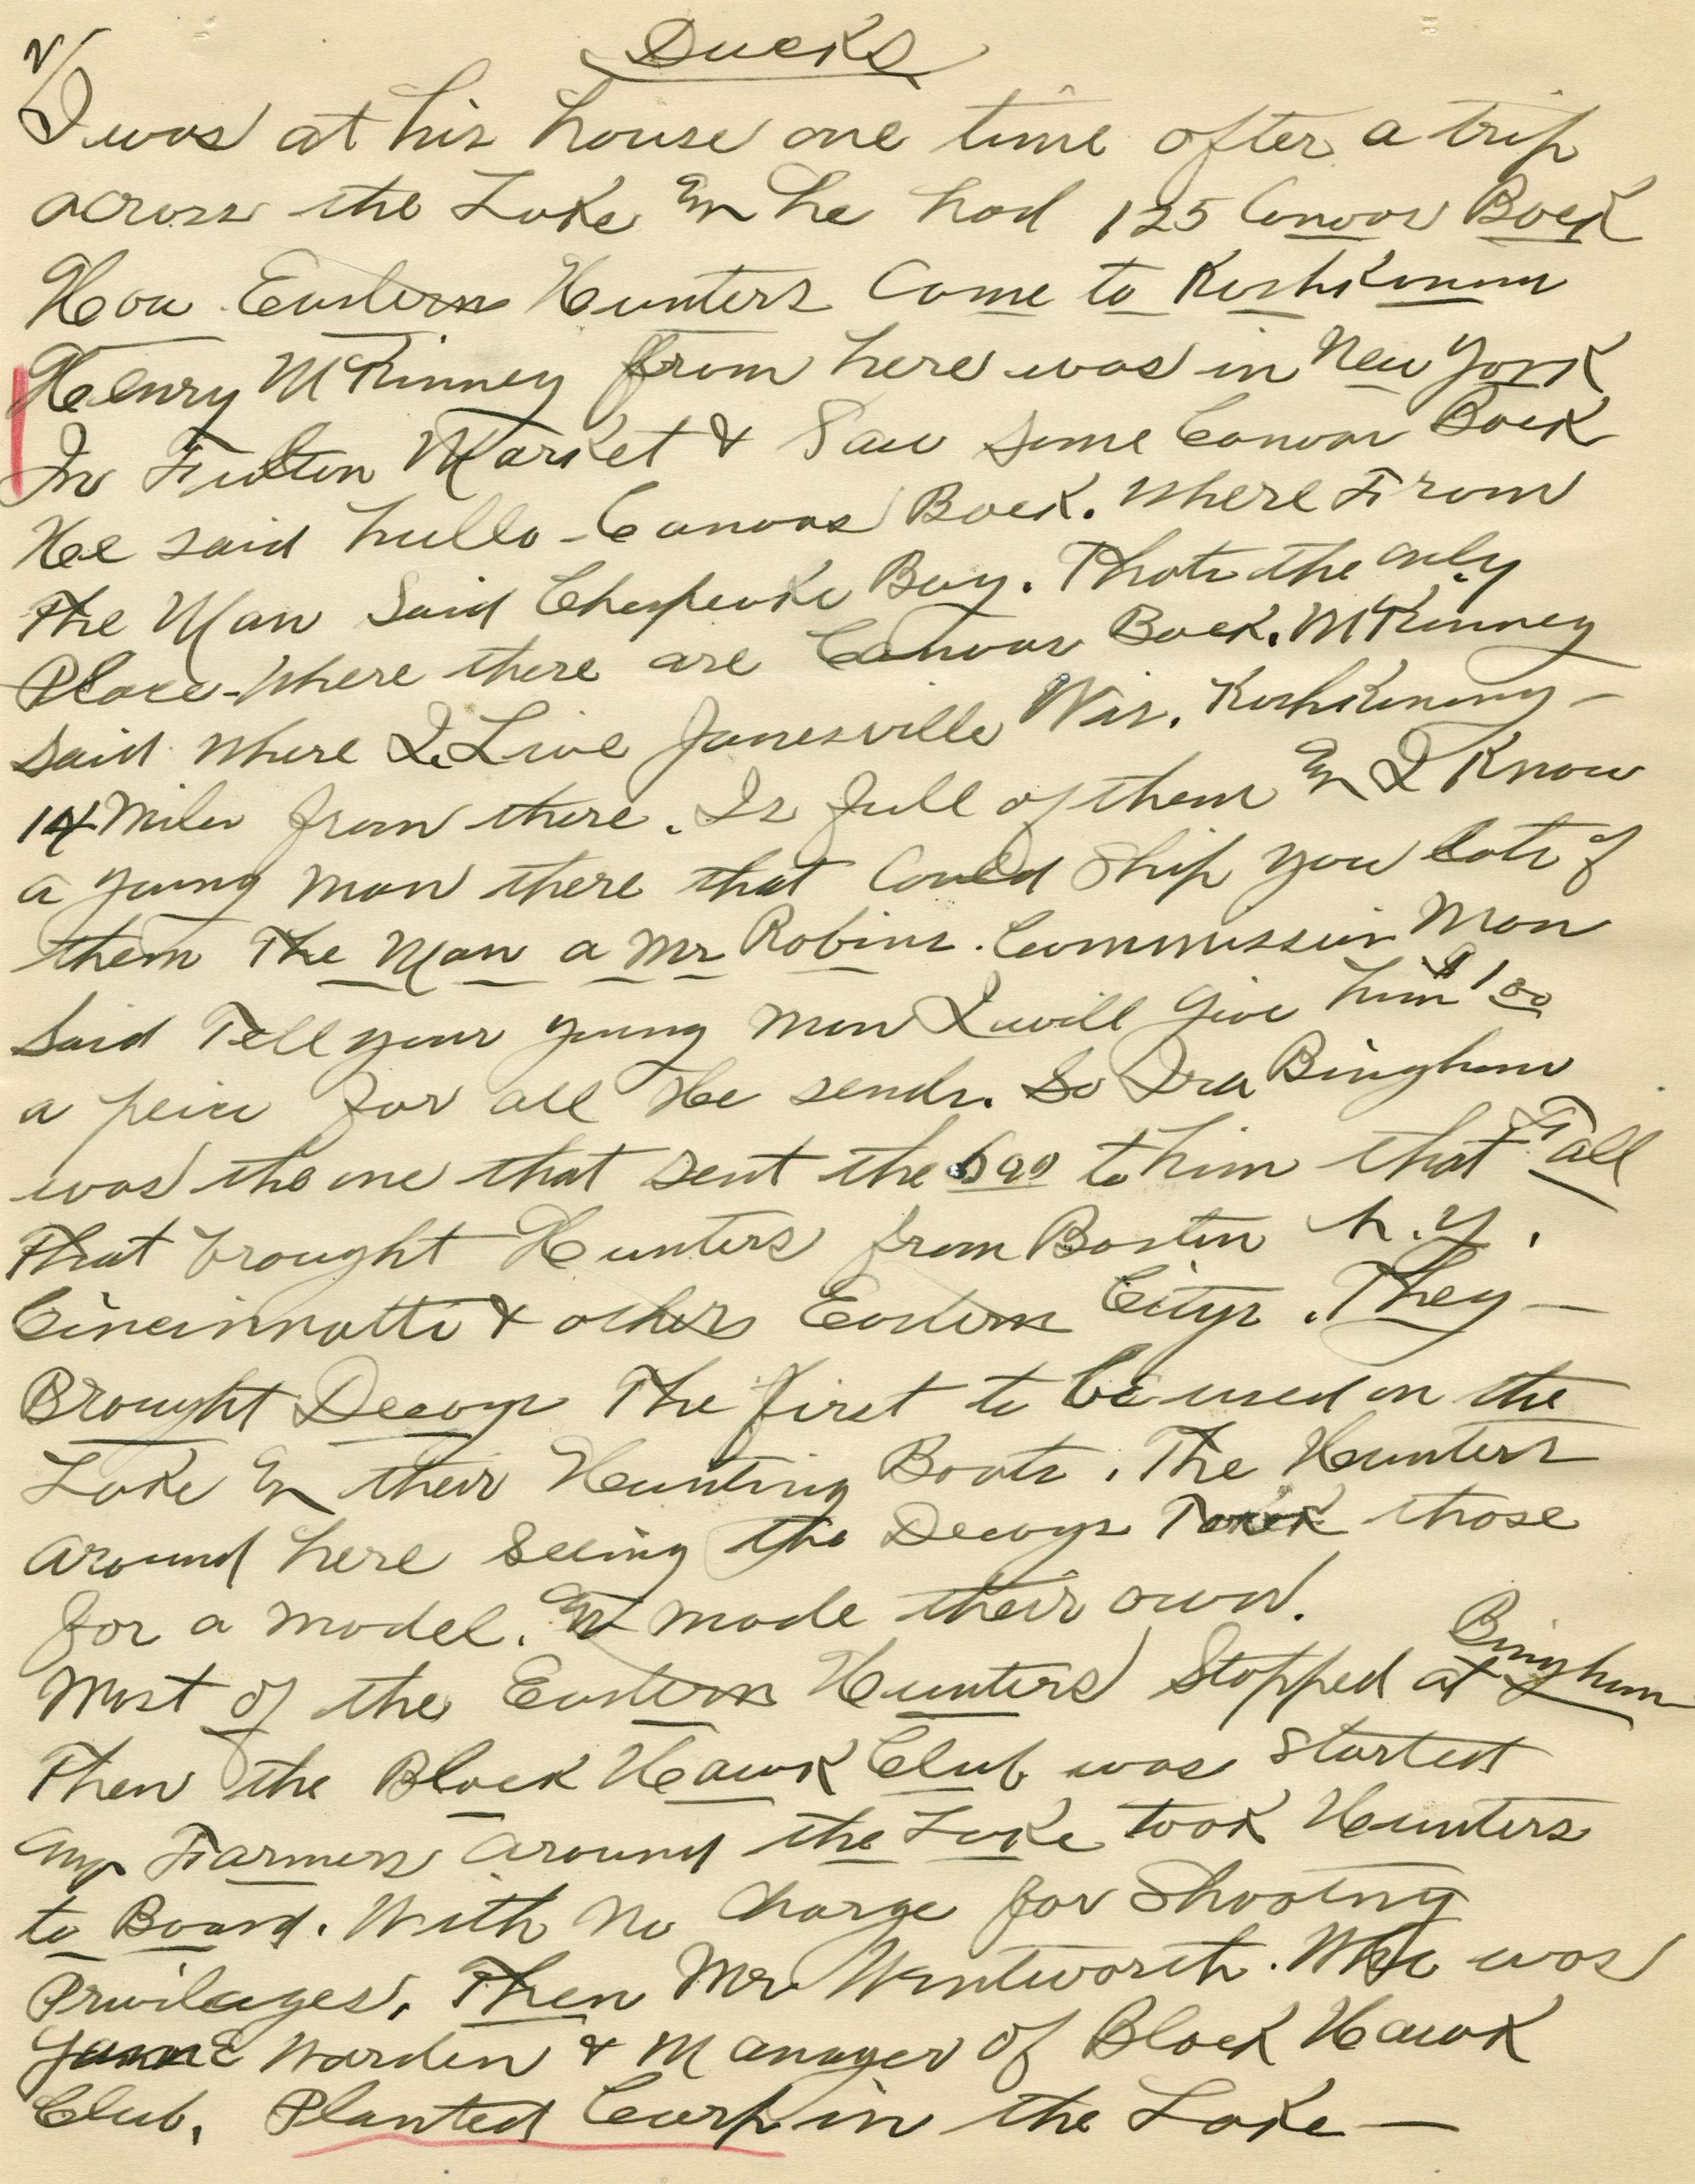 Ducks
2/
I was at his house one time after a trip
across the Lake En he had 125 Canvas Back
How Eastern Hunters Came to Koshkonon
Henry McKinney from here was in New York
In Fulton Market & Saw some Canvas Back
He said hullo - Canvas Back. Where From
The Man Said Chespeake Bay. Thats the only
Place - Where there are Canvas Back. McKinney
said Where I Live Janesville Wis. Koshkonong -
14 Miles from there. Is full of them En I Know
a young man there that Could Ship you lots of
them The Man a Mr Robins. Commission Man
Said Tell your young man I will give him $1 00
a peice for all He sends. So Ira Bingham
was the one that sent the 600 to him that Fall
That brought Hunters from Boston N.Y.
Cincinnatti & others Eastern Citys. They -
Brought Decoys The first to be used on the
Lake En their Hunting Boats. The Hunters
around here seeing the Decoys Took those
for a model. En made their own.
Most of the Eastern Hunters Stopped at Bingham
Then the Black Hawk Club was started
Farmers around the Lake took Hunters
to Board. With No Charge for Shooting
Privilages. Then Mr Wentworth. Who was
Game Warden & Manager of Black Hawk
Club. Planted Carp in the Lake -